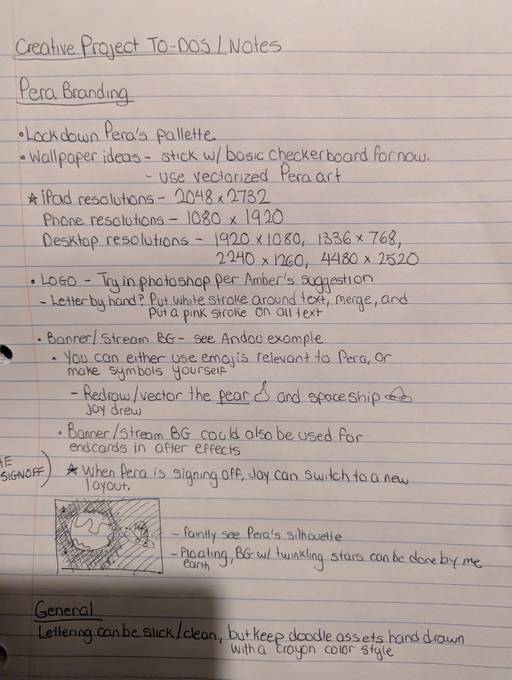 Creative Project TO-DOS / Notes
Pera Branding
• Lockdown Pera's pallette.
• Wallpaper ideas - stick w/ basic checkerboard for now.
- use vectorized Pera art
★ iPad resolutions - 2048 x 2732
Phone resolutions - 1080 x 1920
Desktop resolutions - 1920 x 1080, 1336 x 768,
2240 x 1260, 4480 x 2520
• LOGO - Try in photoshop per Amber's suggestion
- Letter by hand? Put white stroke around text, merge, and
put a pink stroke on all text
• Banner/Stream BG - see Andoo example
• You can either use emojis relevant to Pera, or
make symbols yourself
- Redraw/vector the pear and spaceship
Jay drew
• Banner/Stream BG could also be used for
endcards in after effects
TE
SIGNOFF) ★ When Pera is signing off, Jay can switch to a new
layout.
- Faintly see Pera's silhouette
- Floating, BG w/ twinkling stars can be done by me
earth
General
Lettering can be slick/clean, but keep doodle assets hand drawn
with a crayon color style